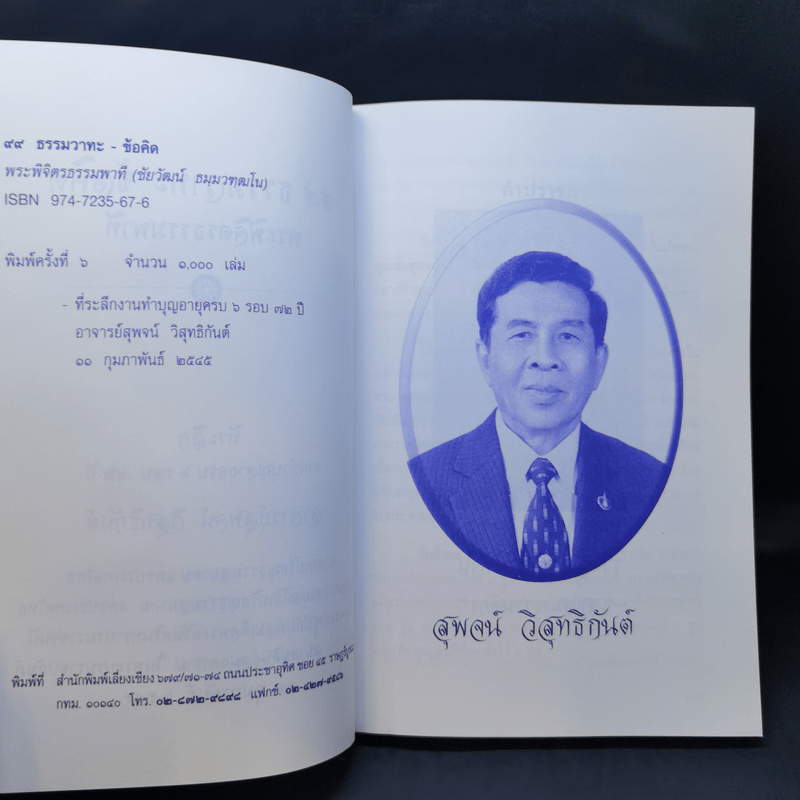 ๙๙ ธรรมวาทะ - ข้อคิด
พระพิจิตรธรรมพาที (ชัยวัฒน์ ธมฺมวฑฺฒโน)
ISBN 974-7235-67-6
พิมพ์ครั้งที่ ๖ จำนวน ๑,๐๐๐ เล่ม
- ที่ระลึกงานทำบุญอายุครบ ๖ รอบ ๗๒ ปี
อาจารย์สุพจน์ วิสุทธิกันต์
๑๑ กุมภาพันธ์ ๒๕๔๕
พิมพ์ที่ สำนักพิมพ์เลี่ยงเชียง ๖๗๙/๗๑-๗๔ ถนนประชาอุทิศ ซอย ๔๕
กทม. ๑๐๑๔๐ โทร. ๐๒-๘๗๒-๙๘๙๘ แฟกซ์.
สุพจน์ วิสุทธิกันต์